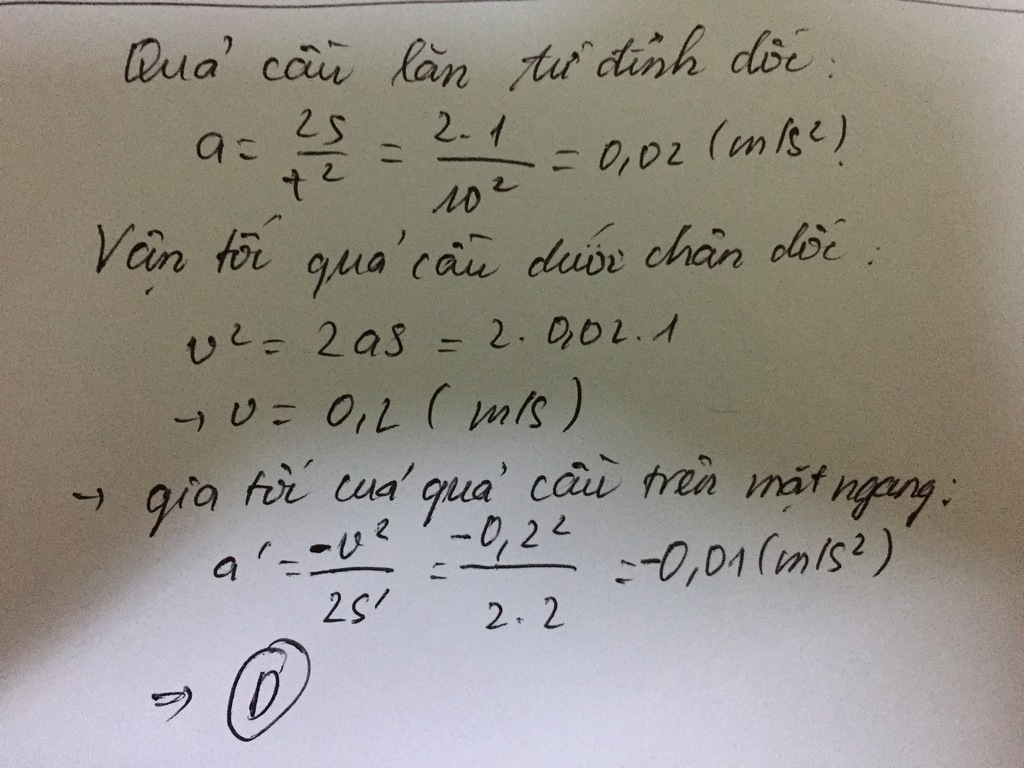 Quả cầu lăn từ đỉnh dốc:
a = 2S/t² = 2.1/10² = 0,02 (m/s²).
Vận tốc quả cầu dưới chân dốc:
v² = 2aS = 2.0,02.1
→ v = 0,2 (m/s)
→ gia tốc cuả quả cầu trên mặt ngang:
a' = -v²/2S' = -0,2²/2.2 = -0,01 (m/s²)
⇒ D